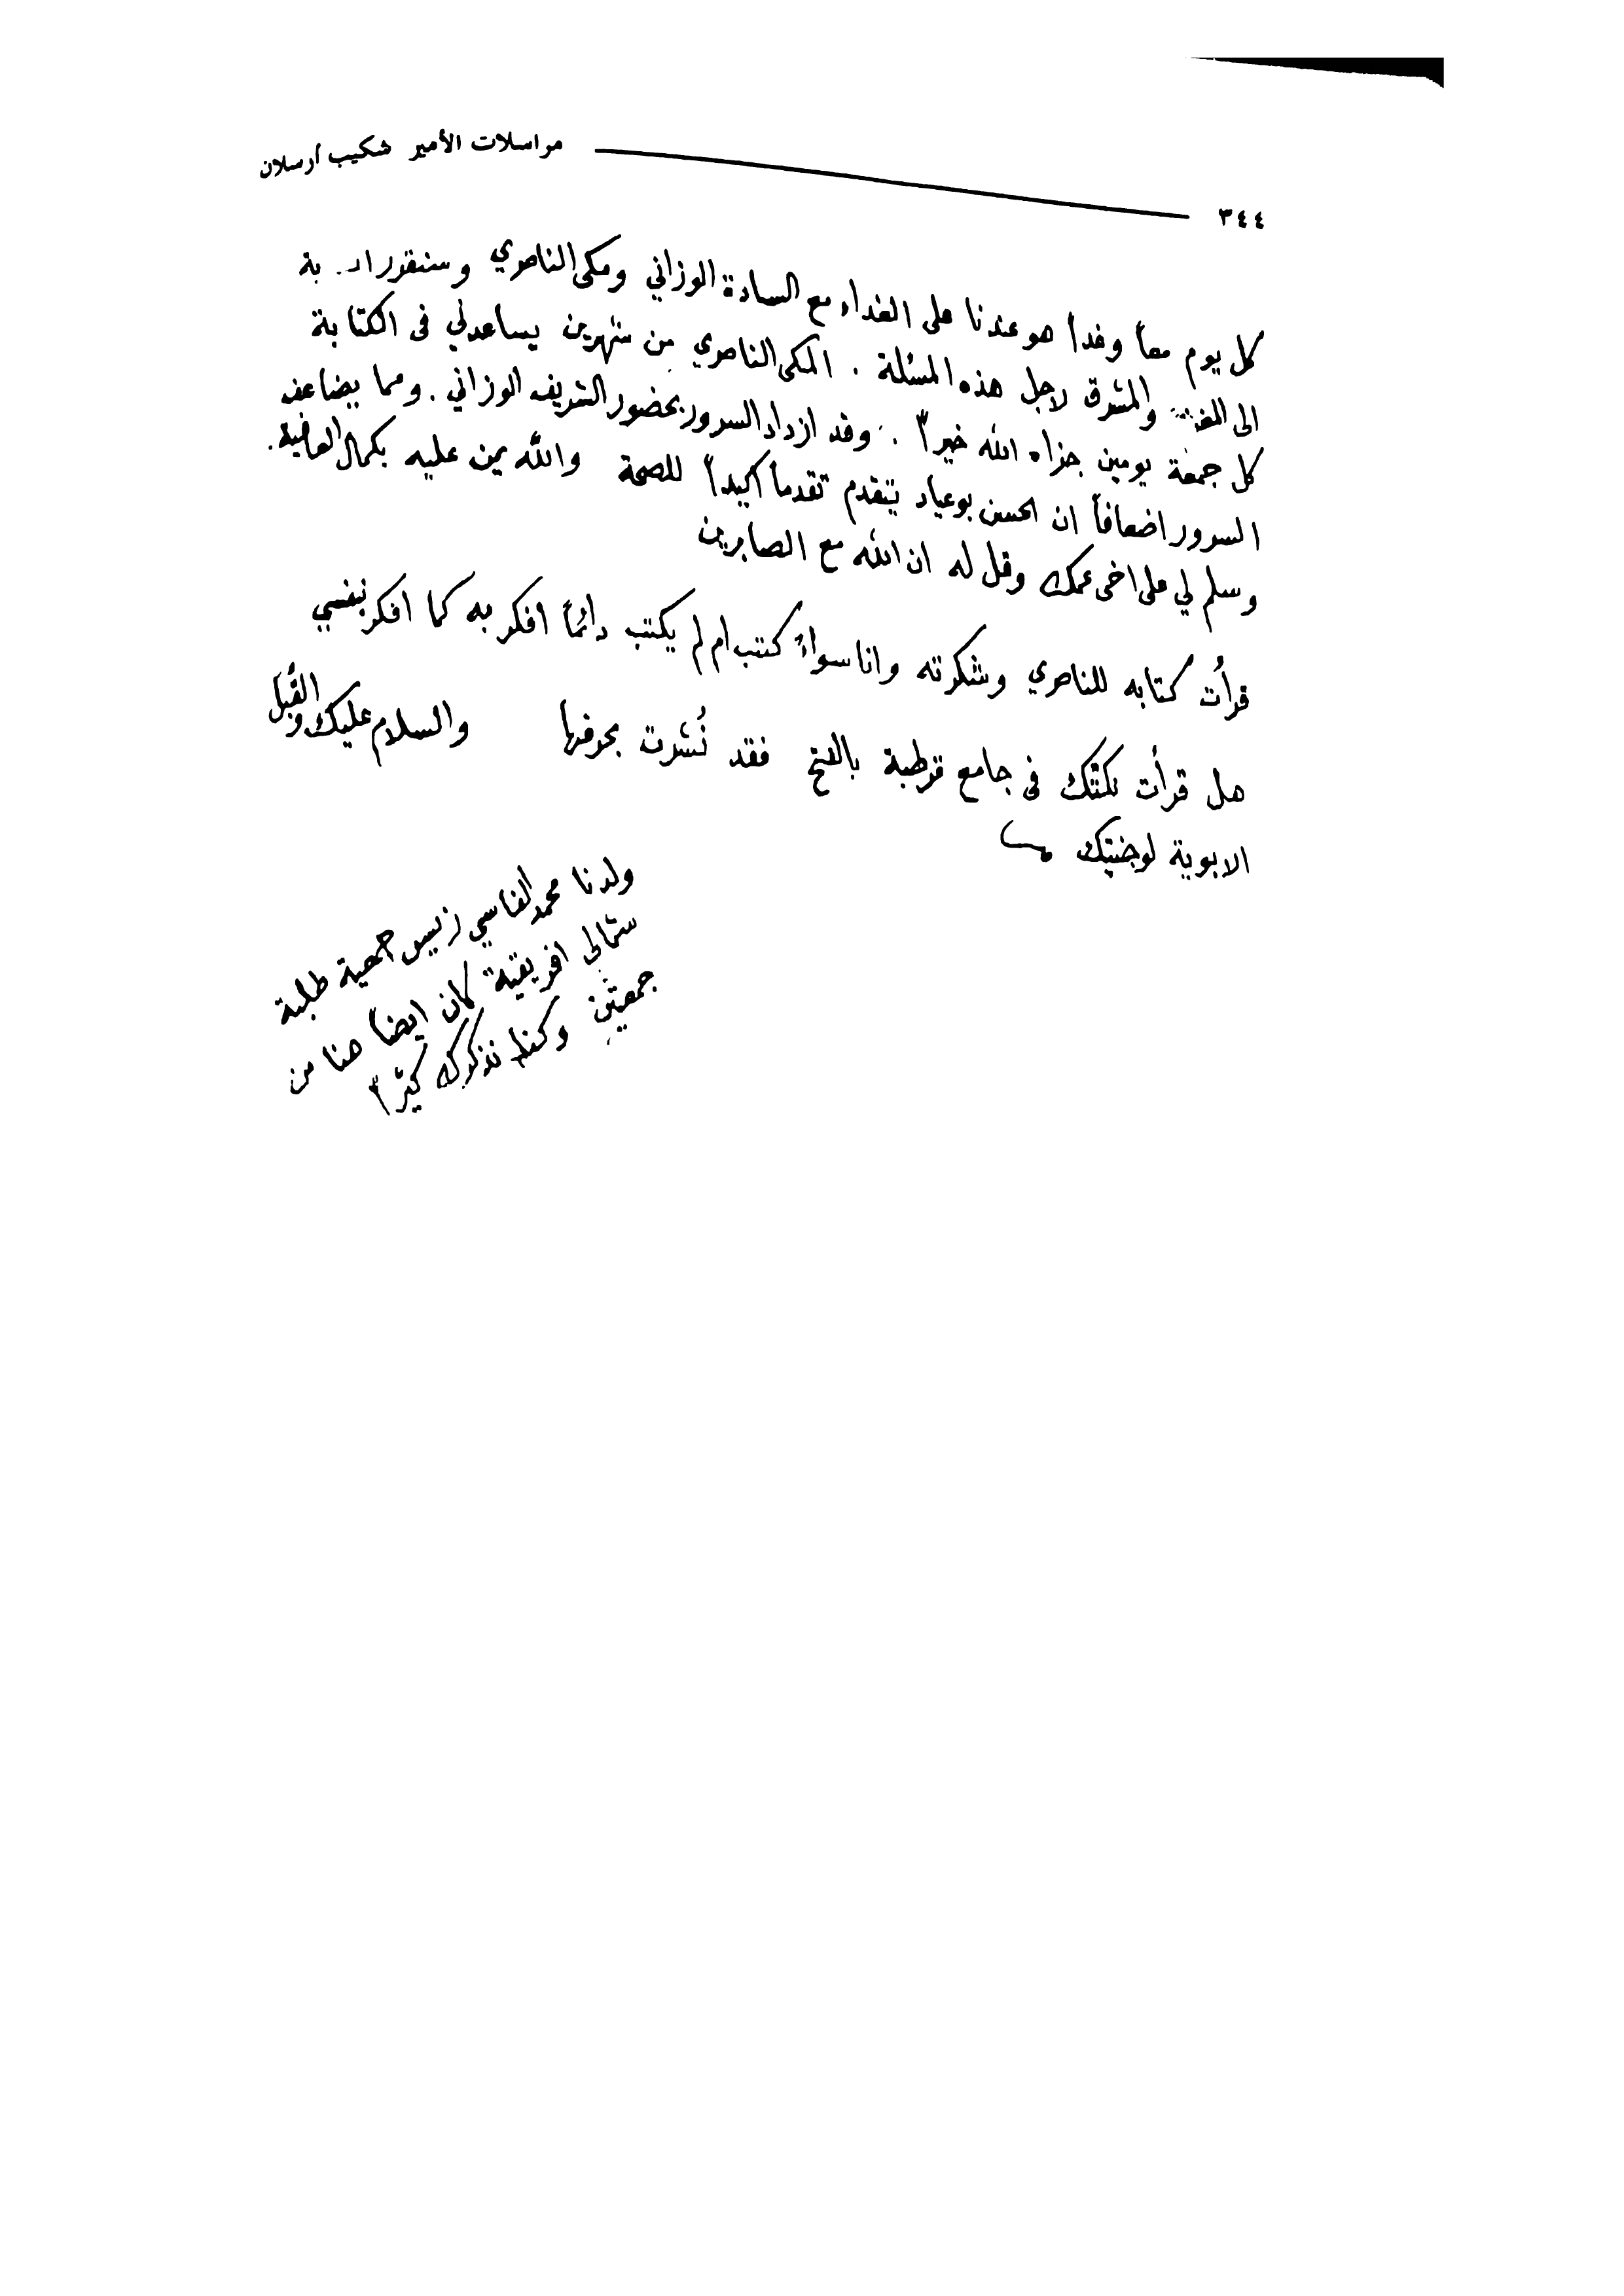 ٣٤٤ مراسلات الأمير شكيب أرسلان
كل يوم معاً وغداً هو عندنا على الغداء مع السادة الوزاني ومكي الناصري وسنقرر
الى المغرب والمشرق لاجل هذه المسئلة . المكي الناصري من شهرين يساعدني في الكتابة
كل جمعة يومين جزاه الله خيراً . وقد ازداد السرور بحضور الشريف الوزاني . ومما يضاعف
السرور اضعافاً ان الحسن بوعياد يتقدم تقدماً اكيداً للصحة والله يمن عليه بكمال العافية .
وسلم لي على اخي عمك وقل له ان الله مع الصابرين
قرأت كتابه للناصري وشكرته وانا سواءً كتب ام لم يكتب دائماً افكر به كما افكر بنفسي
هل قرأت نكتتك في جامع قرطبة بالفتح فقد نُشرت بحرفها والسلام عليك والقُبل
الابوية لوجنتيك
ولدنا محمد الفاسي رئيس جمعية طلبة
شمالي افريقية كان ايضاً هنا من
جمعتين وكنا نذكركم كثيراً